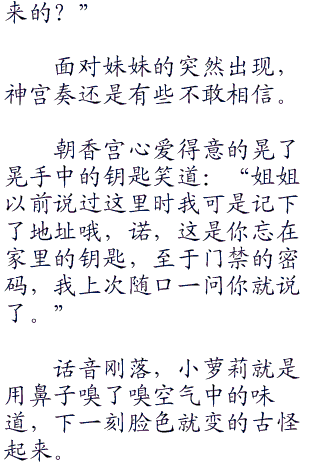 来的？”
面对妹妹的突然出现，
神宫奏还是有些不敢相信。
朝香宫心爱得意的晃了
晃手中的钥匙笑道：“姐姐
以前说过这里时我可是记下
了地址哦，诺，这是你忘在
家里的钥匙，至于门禁的密
码，我上次随口一问你就说
了。”
话音刚落，小萝莉就是
用鼻子嗅了嗅空气中的味
道，下一刻脸色就变的古怪
起来。